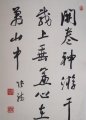 開卷神游千
載上垂簾心在
萬山中